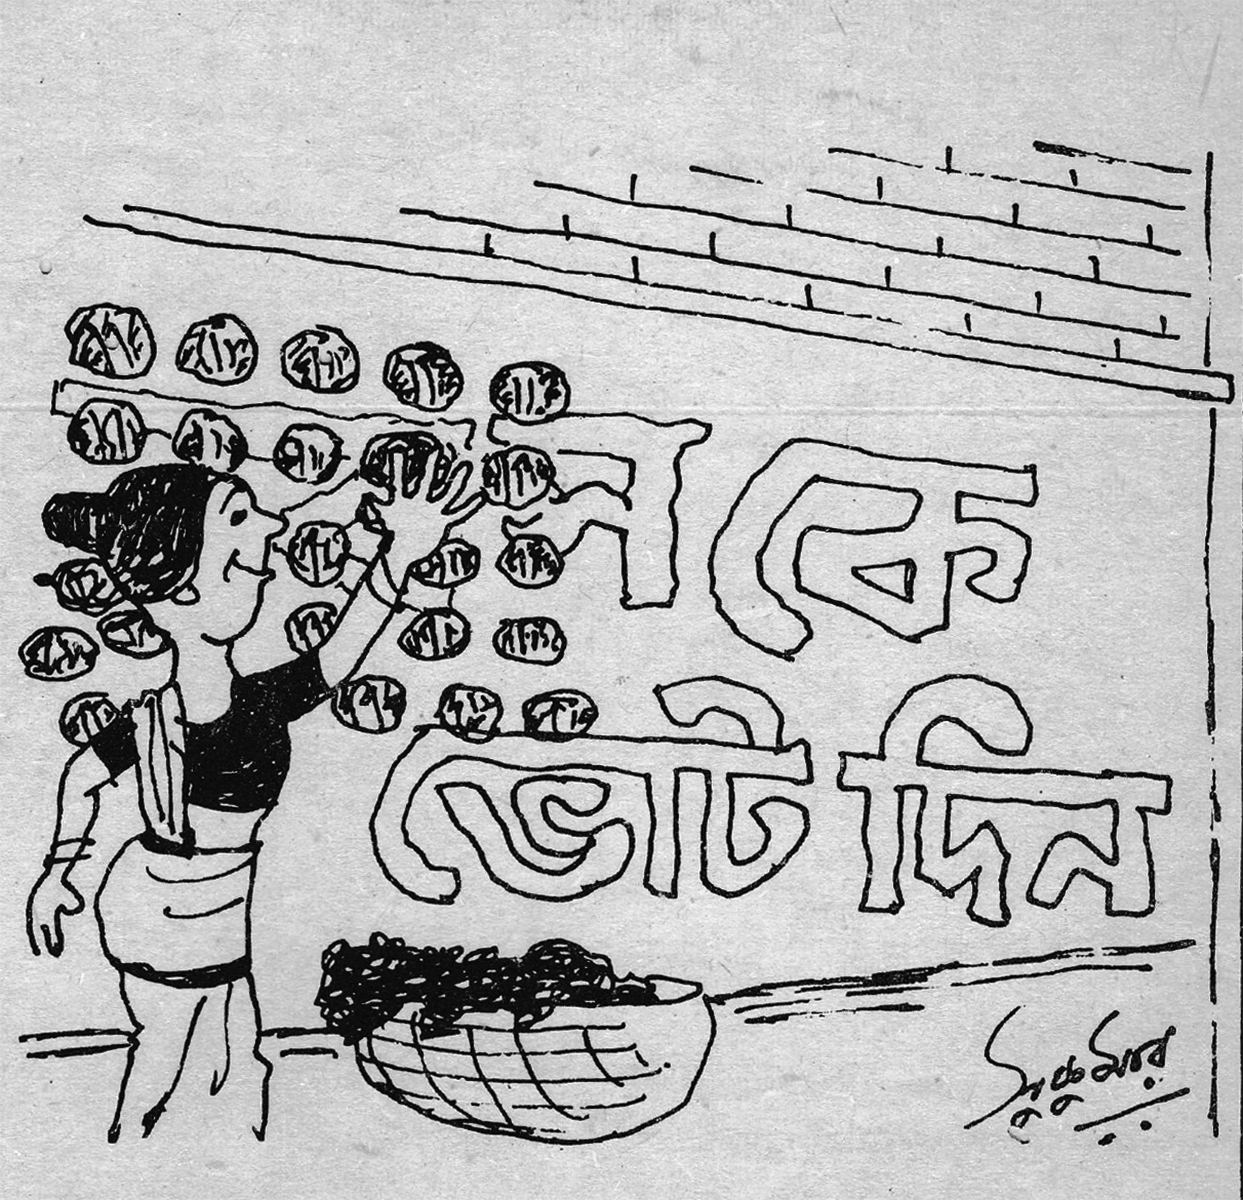 লকে
ভোট দিন
সুকুমার